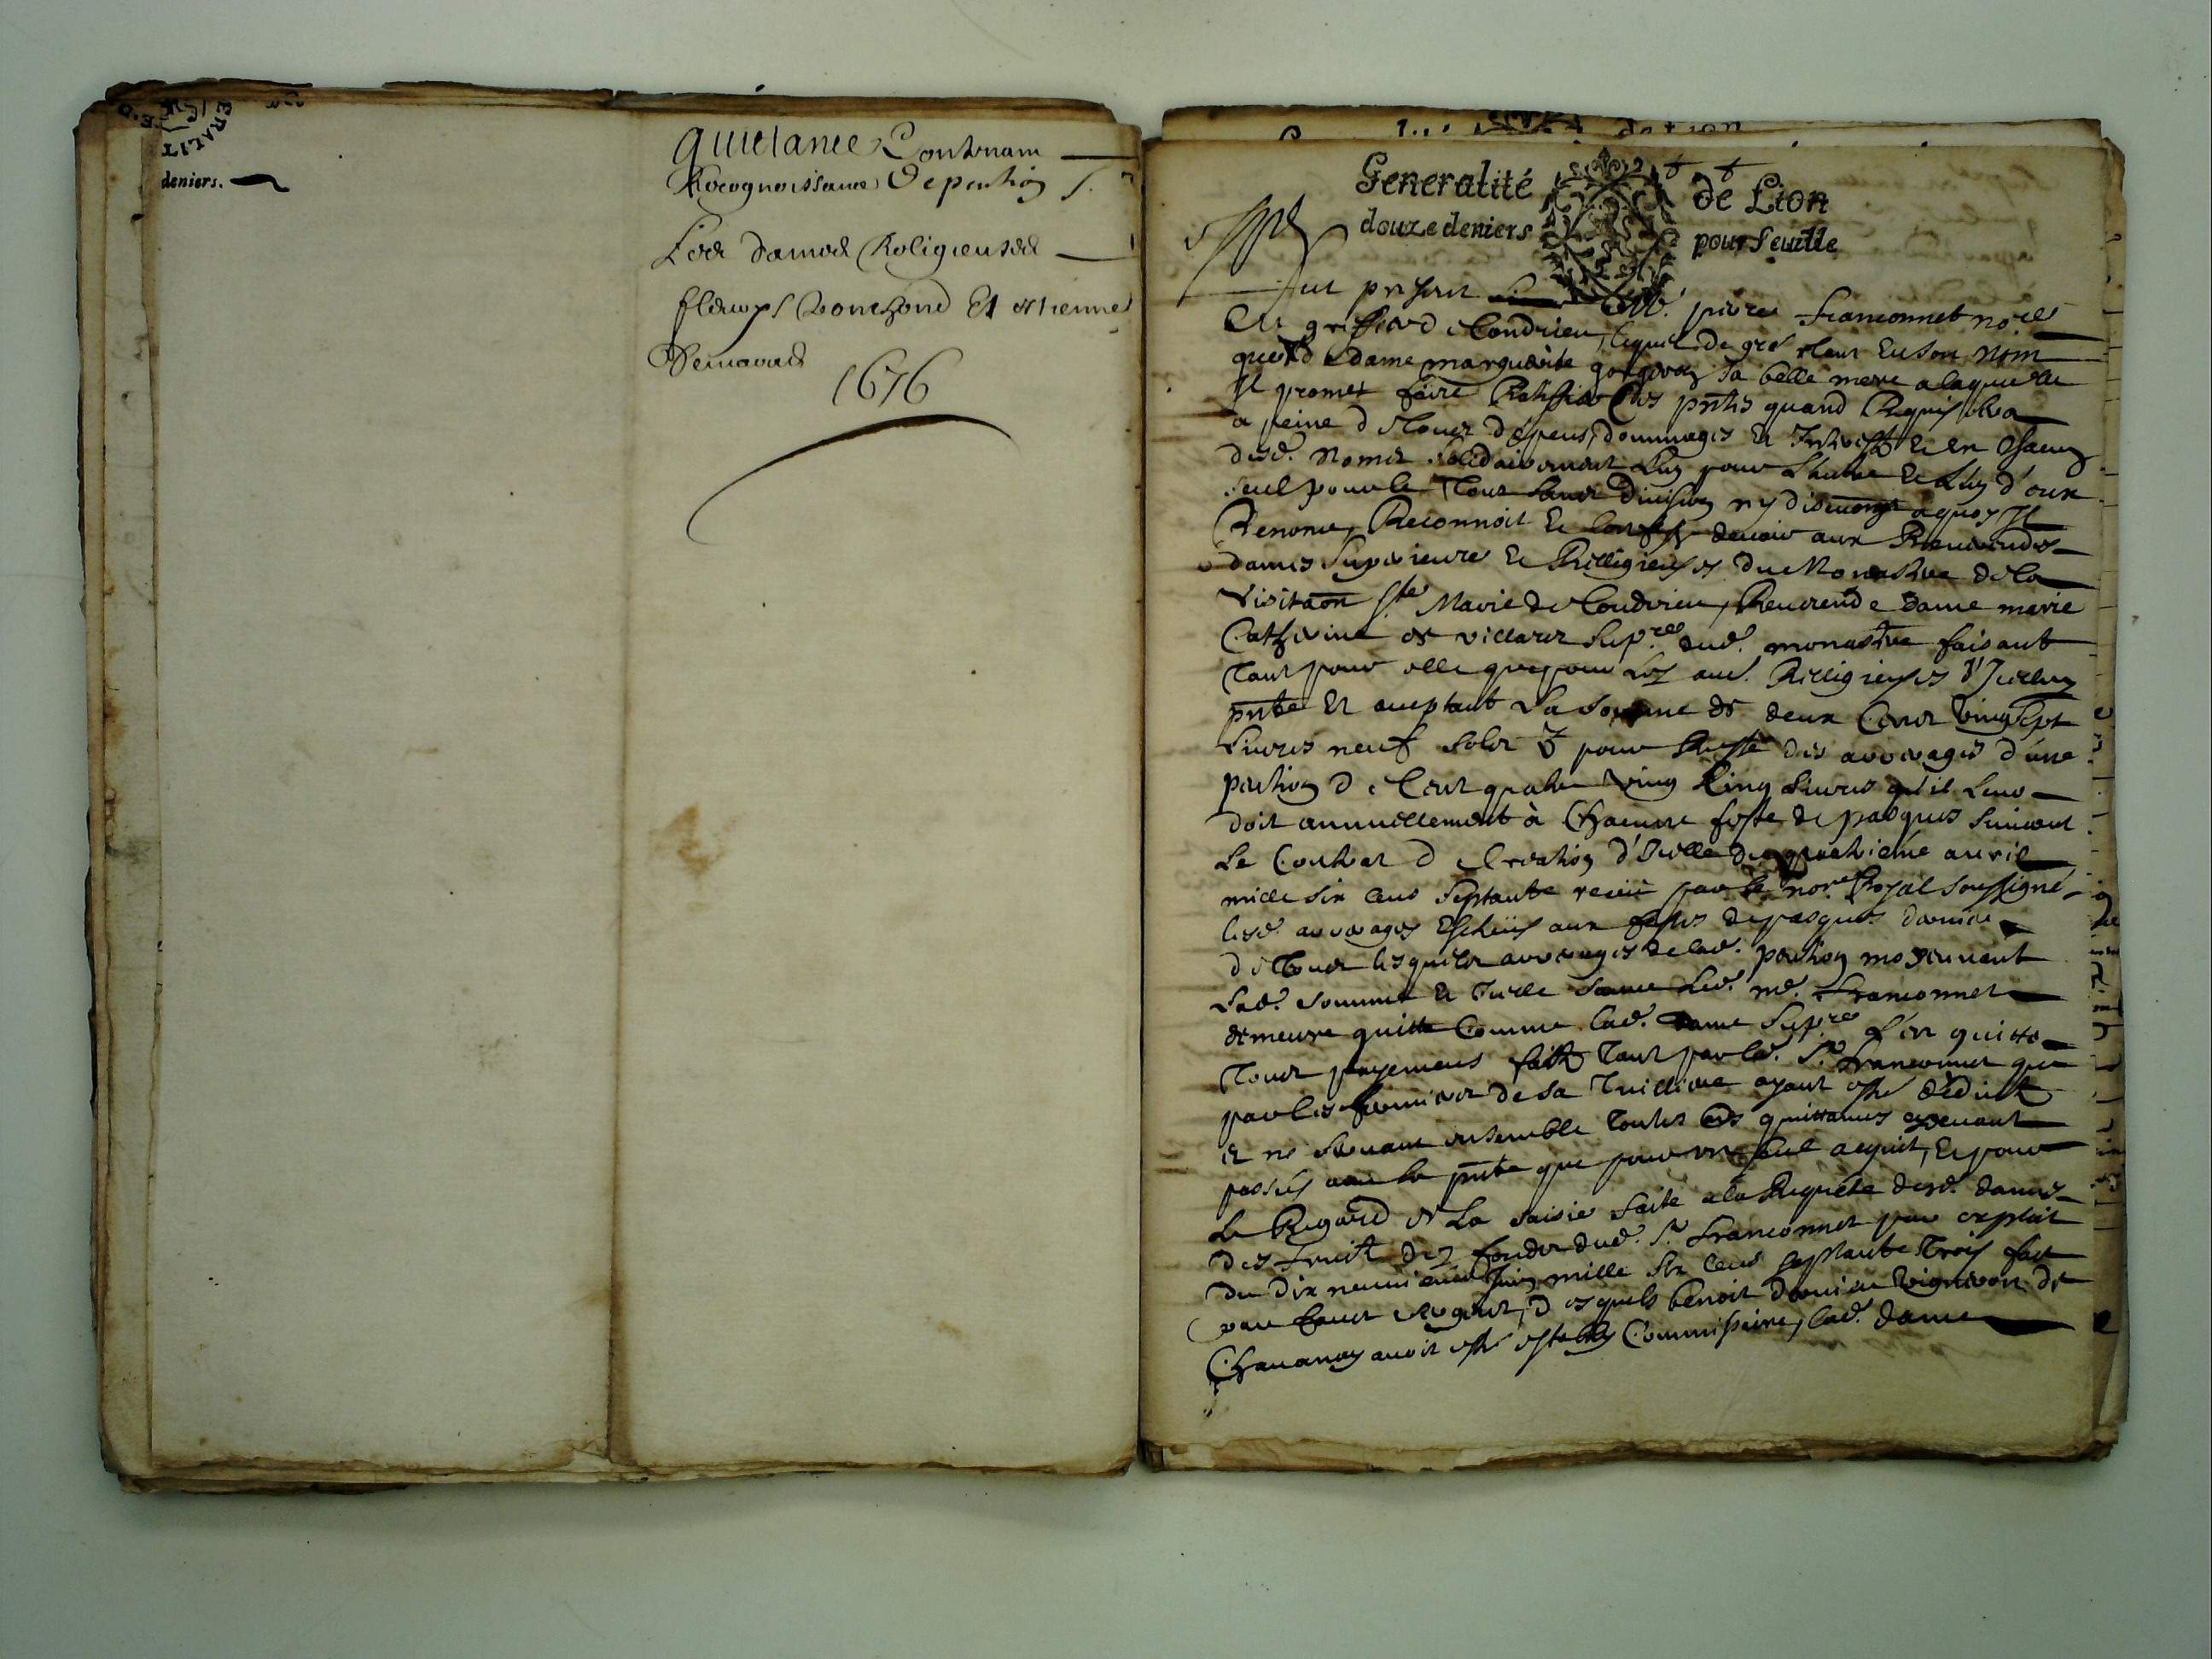 deniers.
Quictance Contenant
Recognoissance De pention
Les dames Religieuses
fleurys Bonchond Et estienne
1676
Generalité de Lion
douze deniers pour feuille
fut present Mr. pierre franconnet no.re
Et greffier de Condrieu, lequel de gré tant en son nom
que de dame marguerite sa belle mere a laquelle
Il promet faire Ratiffier Ces pntes quand Requis sera
a peine de Tous depens, dommages et Interestz et en Chacun
desd. Noms solidairement l'un pour l'autre et l'un d'eux
seul pour le Tout sans division ny discution a quoy Il
Renonce, Reconnoit et Confesse devoir aux Reverendes
dames Superieure et Relligieuses du Monastere de la
Visitaōn Ste Marie de Condrieu, Reverende dame marie
Catherine de villars Supre. dud. monastere faisant
Tant pour elle que pour les aud. Relligieuses d'Icelluy
pnte Et aceptant La Somme de deux Cens vingt sept
Livres neuf solz pour Reste des arrerages d'une
pention de Cent quatre ving Cinq Livres qu'il Leur
doit annuellement à Chacune feste de pasques suivant
Le Contrat de Creation d'Icelle du quatrieme avril
mille six cens septante receu par le nore. Royal soussigné
lesd. arrerages Escheus aux festes de pasques dernier
de Tous lesquels arrerages de lad. pention moyennant
Lad. somme et Icelle Led. me. franconnet
demeure quitte Comme lad. dame Supre. L'en quitte
Tous payemens faitz Tant par led. Sr. franconnet que
par les fermiers de sa Tuilliere ayant esté deduict
et ne servant ensemble Toutes Les quittances cy devant
passées avec la pnte que pour un seul acquit, Et pour
Le Regard de La saisie faite a la Requeste desd. dames
des fruitz des fondz dud. Sr. franconnet par exploit
du dix neuvieme Juin mille six cens septante Trois fait
par sergent, desquels benoit vigneron de
Chavanay avoit esté estably Commissaire, lad. dame